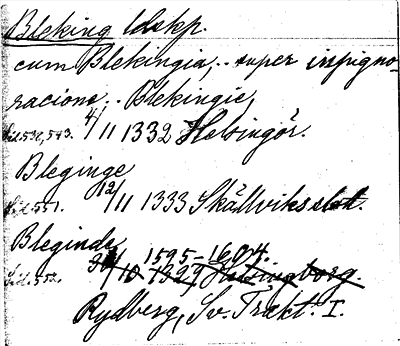 Bleking ldskp.
cum Blekingia, .. super inpigno-
racione .. Blekingie,
Sid. 530, 543. 4/11 1332 Helsingör.
Bleginge
Sid. 551. 12/11 1333 Skällviks slot.
Bleginde 1595-1604.
Sid. 553. /10 1327 Helsingborg.
Rydberg, Sv. Trakt. I.